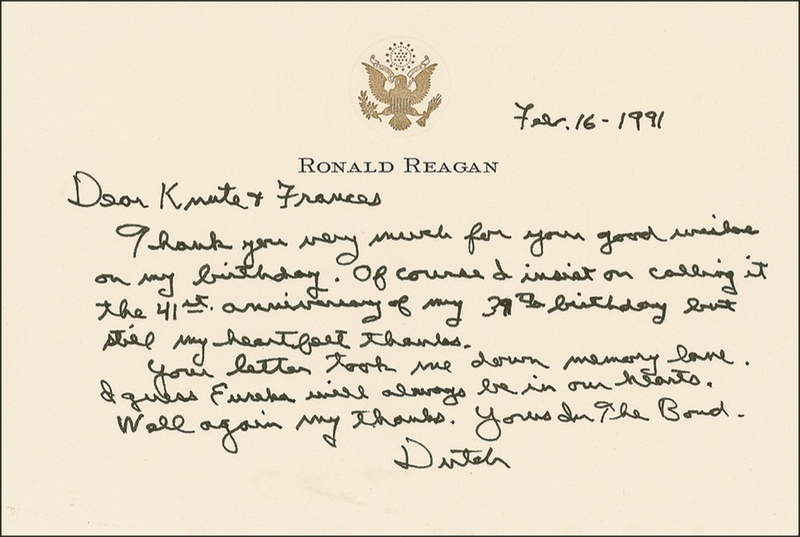 Feb. 16-1991
RONALD REAGAN
Dear Knute & Frances
Thank you very much for your good wishes
on my birthday. Of course I insist on calling it
the 41st. anniversary of my 39th birthday but
still my heartfelt thanks.
Your letter took me down memory lane.
I guess Eureka will always be in our hearts.
Well again my thanks. Yours In The Bond-
Dutch